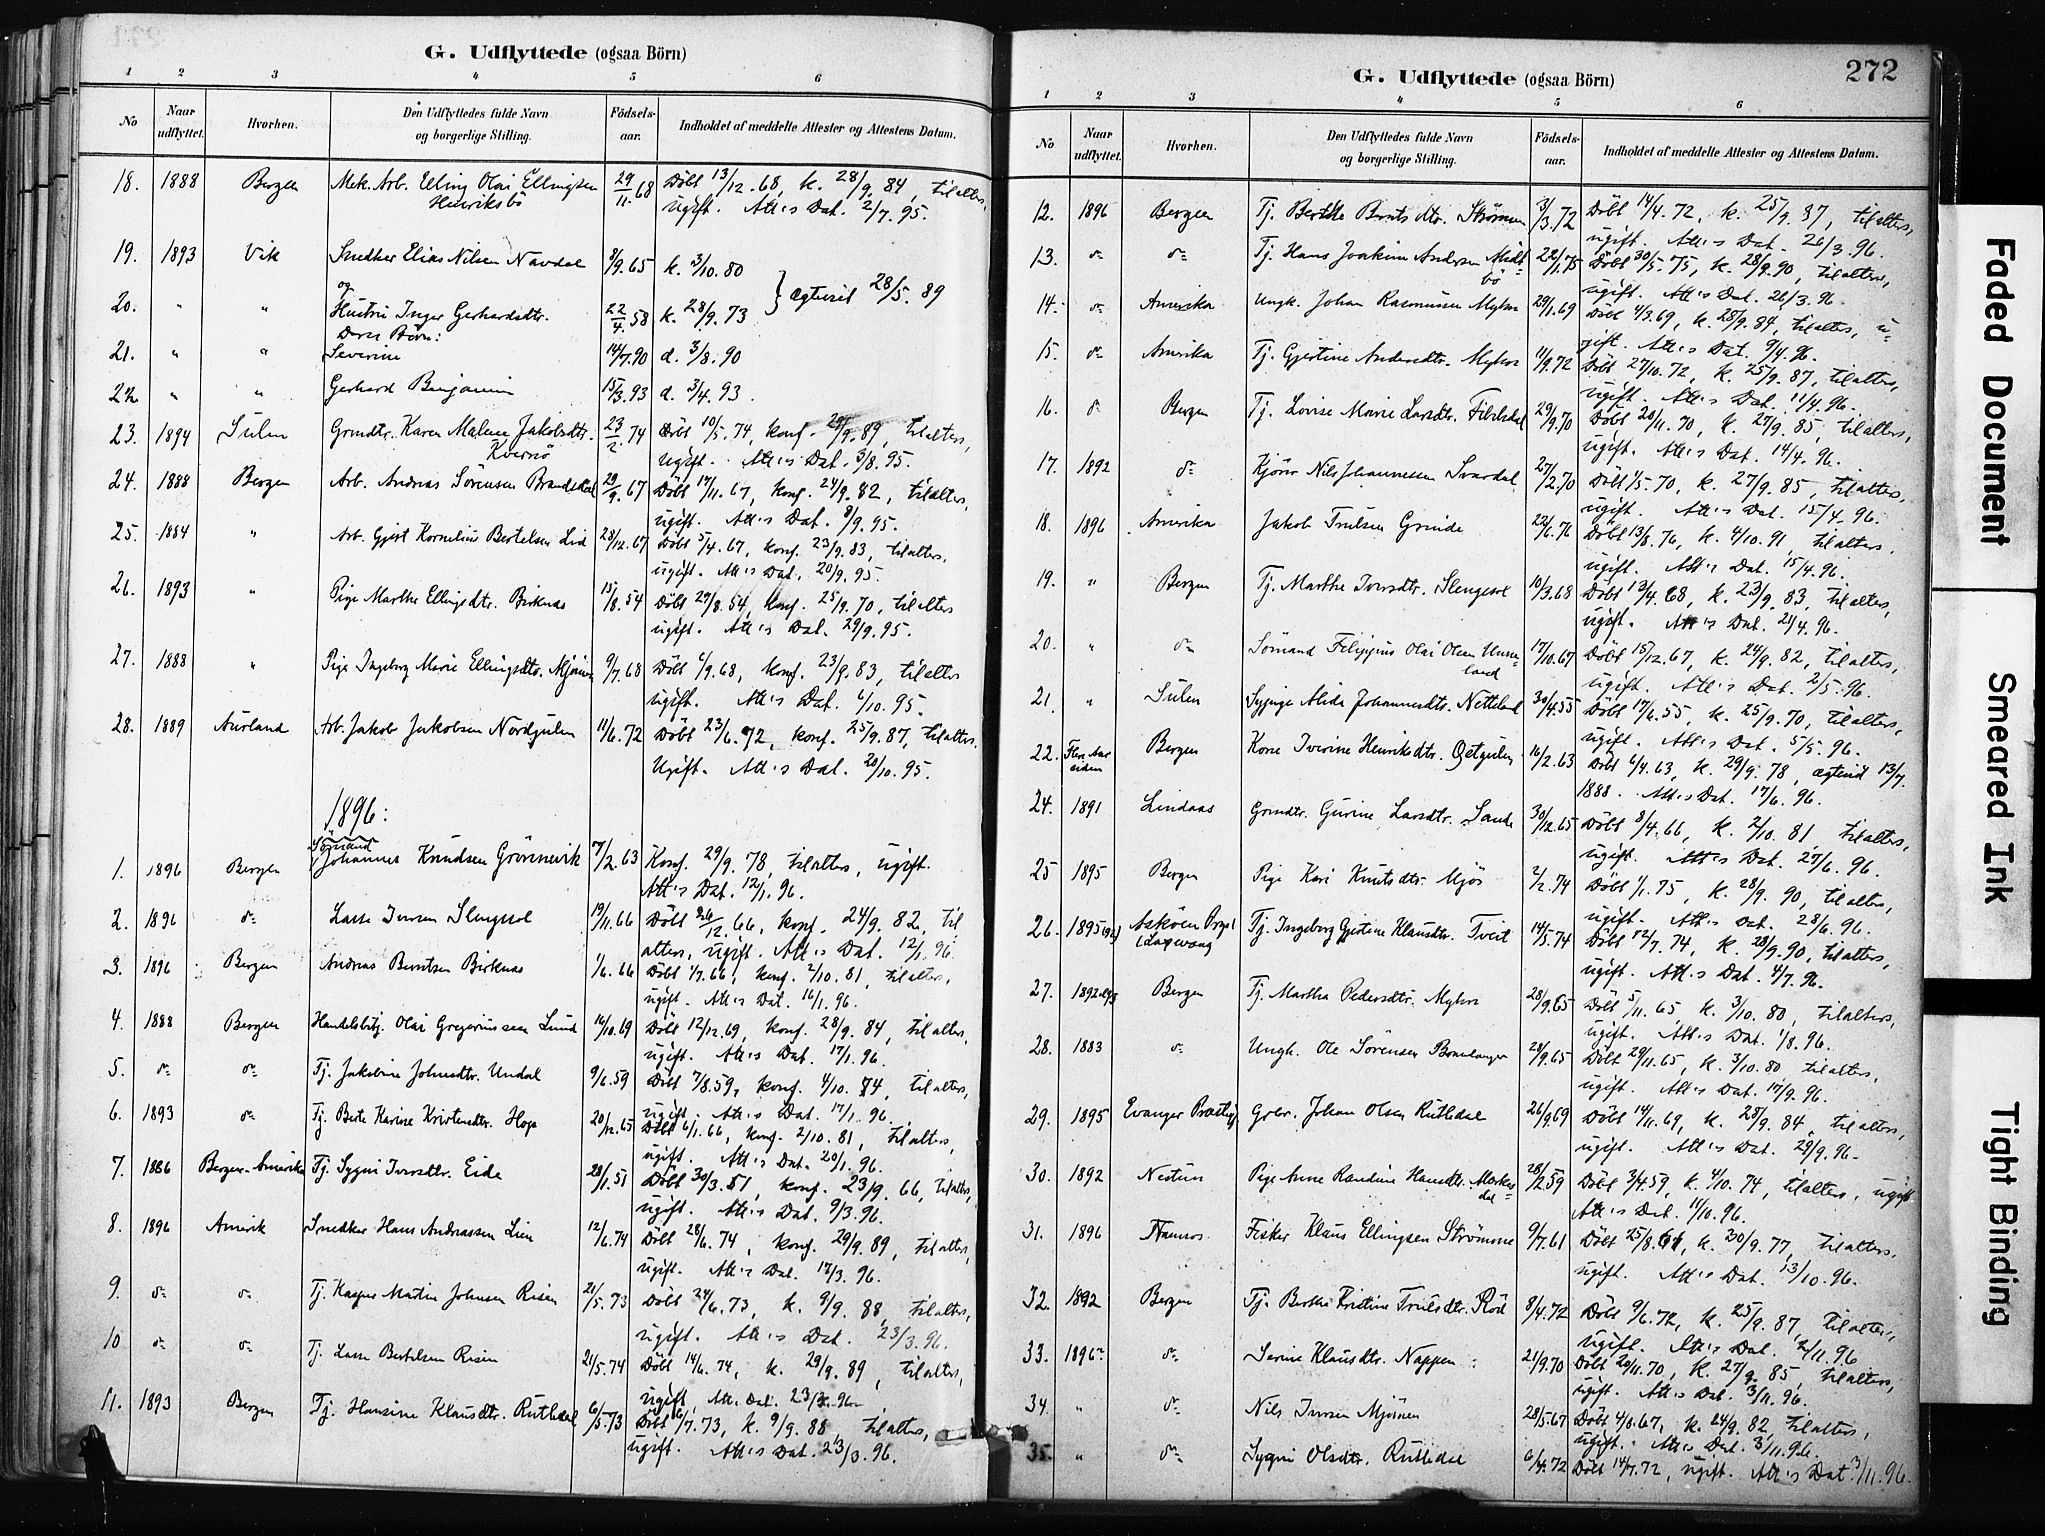 G. Udflyttede (ogsaa Börn)
1 2 3 4 5 6
No Naar udflyttet. Hvorhen. Den Udflyttedes fulde Navn og borgerlige Stilling. Födsels-aar. Indholdet af meddelte Attester og Attestens Datum.
18. 1888 Bergen Mek. Arb. Elling Olai Ellingsen 29/11.68 Döbt 13/12.68, k. 28/9.84, til alters,
Henriksbö ugift. Att:s Dat. 2/7.95.
19. 1893 Vik Snedker Elias Nilsen Navdal 8/9.65 k. 3/10.80
og } ægteviet 28/5.89
20. " " Hustru Inger Gerhardsdtr. 22/4.58 k. 28/9.73
Deres Börn:
21. " " Severine 14/7.90 d. 3/8.90
22 " " Gerhard Benjamin 15/3.93 d. 3/4.93.
23. 1894 Sulen Grmdtr. Karen Malene Jakobsdtr. 23/2.74 Döbt 10/5.74, konf. 29/9.89, til alters,
Kversö ugift. Att:s Dat. 3/8.95.
24. 1888 Bergen Arb. Andreas Sörensen Brandsdal 29/9.67 Döbt 17/11.67, konf. 24/9.82, til alters,
ugift. Att:s Dat. 8/9.95.
25. 1884 " Arb. Gjert Kornelius Bertelsen Lid 28/12.67 Döbt 5/4.67, konf. 23/9.83, til alters.
ugift. Att:s Dat. 20/9.95.
26. 1893 " Pige Marthe Ellingsdtr. Birknes 15/8.54 Döbt 27/8.54, konf. 25/9.70, til alters
ugift. Att:s Dat. 29/9.95.
27. 1888 " Pige Ingeborg Marie Ellingsdtr. Mjömen 9/7.68 Döbt 6/9.68, konf. 23/9.83, til alters
ugift. Att:s Dat. 6/10.95.
28. 1889 Aurland Arb. Jakob Jakobsen Nordgulen 11/6.72 Döbt 23/6.72, konf. 25/9.87, til alters.
Ugift. Att:s Dat. 20/10.95.
1896:
Sömand
1. 1896 Bergen Johannes Knudsen Grönnevik 7/2.63 Konf. 29/9.78, til alters, ugift.
Att:s Dat. 12/1.96.
2. 1896 do Lasse Iversen Slengesol 19/11.66 Döbt 26/12.66, konf. 24/9.82, til
alters, ugift. Att:s Dat. 12/1.96.
3. 1896 Bergen Andreas Berntsen Birknes 1/6.66 Döbt 1/7.66, konf. 2/10.81, til alters,
ugift. Att:s Dat. 16/1.96.
4. 1888 Bergen Handelsbtj. Olai Gregoriussen Lund 16/10.69 Döbt 12/12.69, konf. 28/9.84, til alters,
ugift. Att:s Dat. 17/1.96.
5. do do Tj. Jakobine Johnsdtr. Undal 9/6.59 Döbt 7/8.59, konf. 4/10.74, til alters,
ugift. Att:s Dat. 17/1.96.
6. 1893 do Tj. Berte Karine Kristensdtr. Hope 20/12.65 Döbt 6/1.66, konf. 2/10.81, til alters,
ugift. Att:s Dat. 20/1.96.
7. 1866 Bergen-Amerika Tj. Sygni Iversdtr. Eide 28/1.51 Döbt 30/3.51, konf. 23/9.66, til alters,
ugift. Att:s Dat. 9/3.96.
8. 1896 Amerik Snedker Hans Andreassen Lien 12/6.74 Döbt 28/6.74, konf. 29/9.89, til alters,
ugift. Att:s Dat. 17/3.96.
9. do do Tj. Kasper Martin Johnsen Risen 21/5.73 Döbt 24/6.73, k. 9/9.88, til alters,
ugift. Att:s Dat. 23/3.96.
10 do do Tj. Lasse Bertelsen Risen 21/5.74 Döbt 14/6.74, k. 29/9.89, til alters,
ugift. Att:s Dat. 23/3.96.
11. 1893 Bergen Tj. Hansine Klausdtr. Rutledal 6/5.73 Döbt 6/7.73, k. 9/9.88, til alters,
ugift. Att:s Dat. 23/3.96.
G. Udflyttede (ogsaa Börn) 272
1 2 3 4 5 6
No Naar udflyttet. Hvorhen. Den Udflyttedes fulde Navn og borgerlige Stilling. Födsels-aar. Indholdet af meddelte Attester og Attestens Datum.
12. 1896 Bergen Tj. Berthe Berntsdtr. Strömen 3/3.72 Döbt 14/4.72, k. 25/9.87, til alters,
ugift. Att:s Dat. 26/3.96.
13. do do Tj. Hans Joakim Andersen Midtbö 22/1.75 Döbt 30/5.75, k. 28/9.90, til alters,
ugift. Att:s Dat. 26/3.96.
14. do Amerika Ungk. Johan Rasmussen Myhre 29/1.69 Döbt 4/3.69, k. 28/9.84, til alters, u-
gift. Att:s Dat. 9/4.96.
15. do Amerika Tj. Gjertine Andersdtr. Myhre 11/9.72 Döbt 27/10.72, k. 25/9.87, til alters,
ugift. Att:s Dat. 11/4.96.
16. do Bergen Tj. Lovise Marie Larsdtr. Fivelsdal 29/9.70 Döbt 20/11.70, k. 27/9.85, til alters,
ugift. Att:s Dat. 14/4.96.
17. 1892 do Kjörer Nils Johannessen Svardal 27/2.70 Döbt 1/5.70, k. 27/9.85, til alters,
ugift. Att:s Dat. 15/4.96.
18. 1896 Amerika Jakob Trulsen Grinde 22/6.76 Döbt 13/8.76, k. 4/10.91, til alters.
ugift. Att:s Dat. 15/4.96.
19. " Bergen Tj. Marthe Iversdtr. Slengesol 10/3.68 Döbt 13/4.68, k. 23/9.83, til alters,
ugift. Att:s Dat. 21/4.96.
20. " do Sömand Filippus Olai Olsen Unneland 17/10.67 Döbt 15/12.67, k. 24/9.82, til alters,
ugift. Att:s Dat. 2/5.96.
21. " Sulen Sypige Alida Johannesdtr. Netteland 30/4.55 Döbt 17/6.55, k. 25/9.70, til alters,
ugift. Att:s Dat. 5/5.96.
22. Flere Aar siden Bergen Kone Iverine Henriksdtr. Östgulen 16/2.63 Döbt 6/4.63, k. 29/9.78, ægteviet 13/7
1888. Att:s Dat. 17/6.96.
24. 1891 Lindaas Grmdtr. Gurine Larsdtr. Sande 30/12.65 Döbt 8/4.66, k. 2/10.81 til alters,
ugift. Att:s Dat. 27/6.96.
25 1895 Bergen Pige Kari Knutsdtr. Mjös 2/2.74 Döbt 1/1.75, k. 28/9.90, til alters,
ugift. Att:s Dat. 28/6.96.
26. 1895 Asköen Prgd (Laxevaag Tj. Ingeborg Gjertine Klausdtr. Tveit 14/5.74 Döbt 12/7.74, k. 28/9.90, til alters,
ugift. Att:s Dat. 4/7.96.
27. 1892 Bergen Tj. Martha Pedersdtr. Myhre 28/9.65 Döbt 5/11.65, k. 3/10.80, til alters,
ugift. Att:s Dat. 1/8.96.
28. 1883 do Ungk. Ole Sörensen Brandanger 28/9.65 Döbt 29/11.65, k. 3/10.80, til alters,
ugift. Att:s Dat. 17/9.96.
29. 1895 Evanger Præstegj. Grbr. Johan Olsen Rutledal 26/9.69 Döbt 14/11.69, k. 28/9.84, til alters,
ugift. Att:s Dat. 29/9.96.
30. 1892 Nestun Pige Anne Randine Hansdtr. Merkesdal 28/2.59 Döbt 3/4.59, k. 4/10.74, til alters, ugift
Att:s Dat. 11/10.96.
31. 1896 Namsos. Fisker Klaus Ellingsen Strömme 9/7.61 Döbt 25/8.61, k. 30/9.77, til alters.
ugift. Att:s Dat. 13/10.96.
32. 1892 Bergen Tj. Berthe Kristine Trulsdtr. Röd 8/4.72 Döbt 9/6.72, k. 25/9.87, til alters,
ugift. Att:s Dat. 2/11.96
33. 1896 do Serine Klausdtr. Nappen 21/9.70 Döbt 20/11.70, k. 27/9.85, til alters,
ugift. Att:s Dat. 3/11.96.
34. " do Nils Iversen Mjömen 28/5.67 Döbt 4/8.67, k. 24/9.82, til alters,
ugift. Att:s Dat. 3/11.96.
35. " do Sygni Olsdtr. Rutledal 6/4.72 Döbt 14/7.72, ugift. Att:s Dat. 3/11.96.
Faded Document
Smeared Ink
Tight Binding